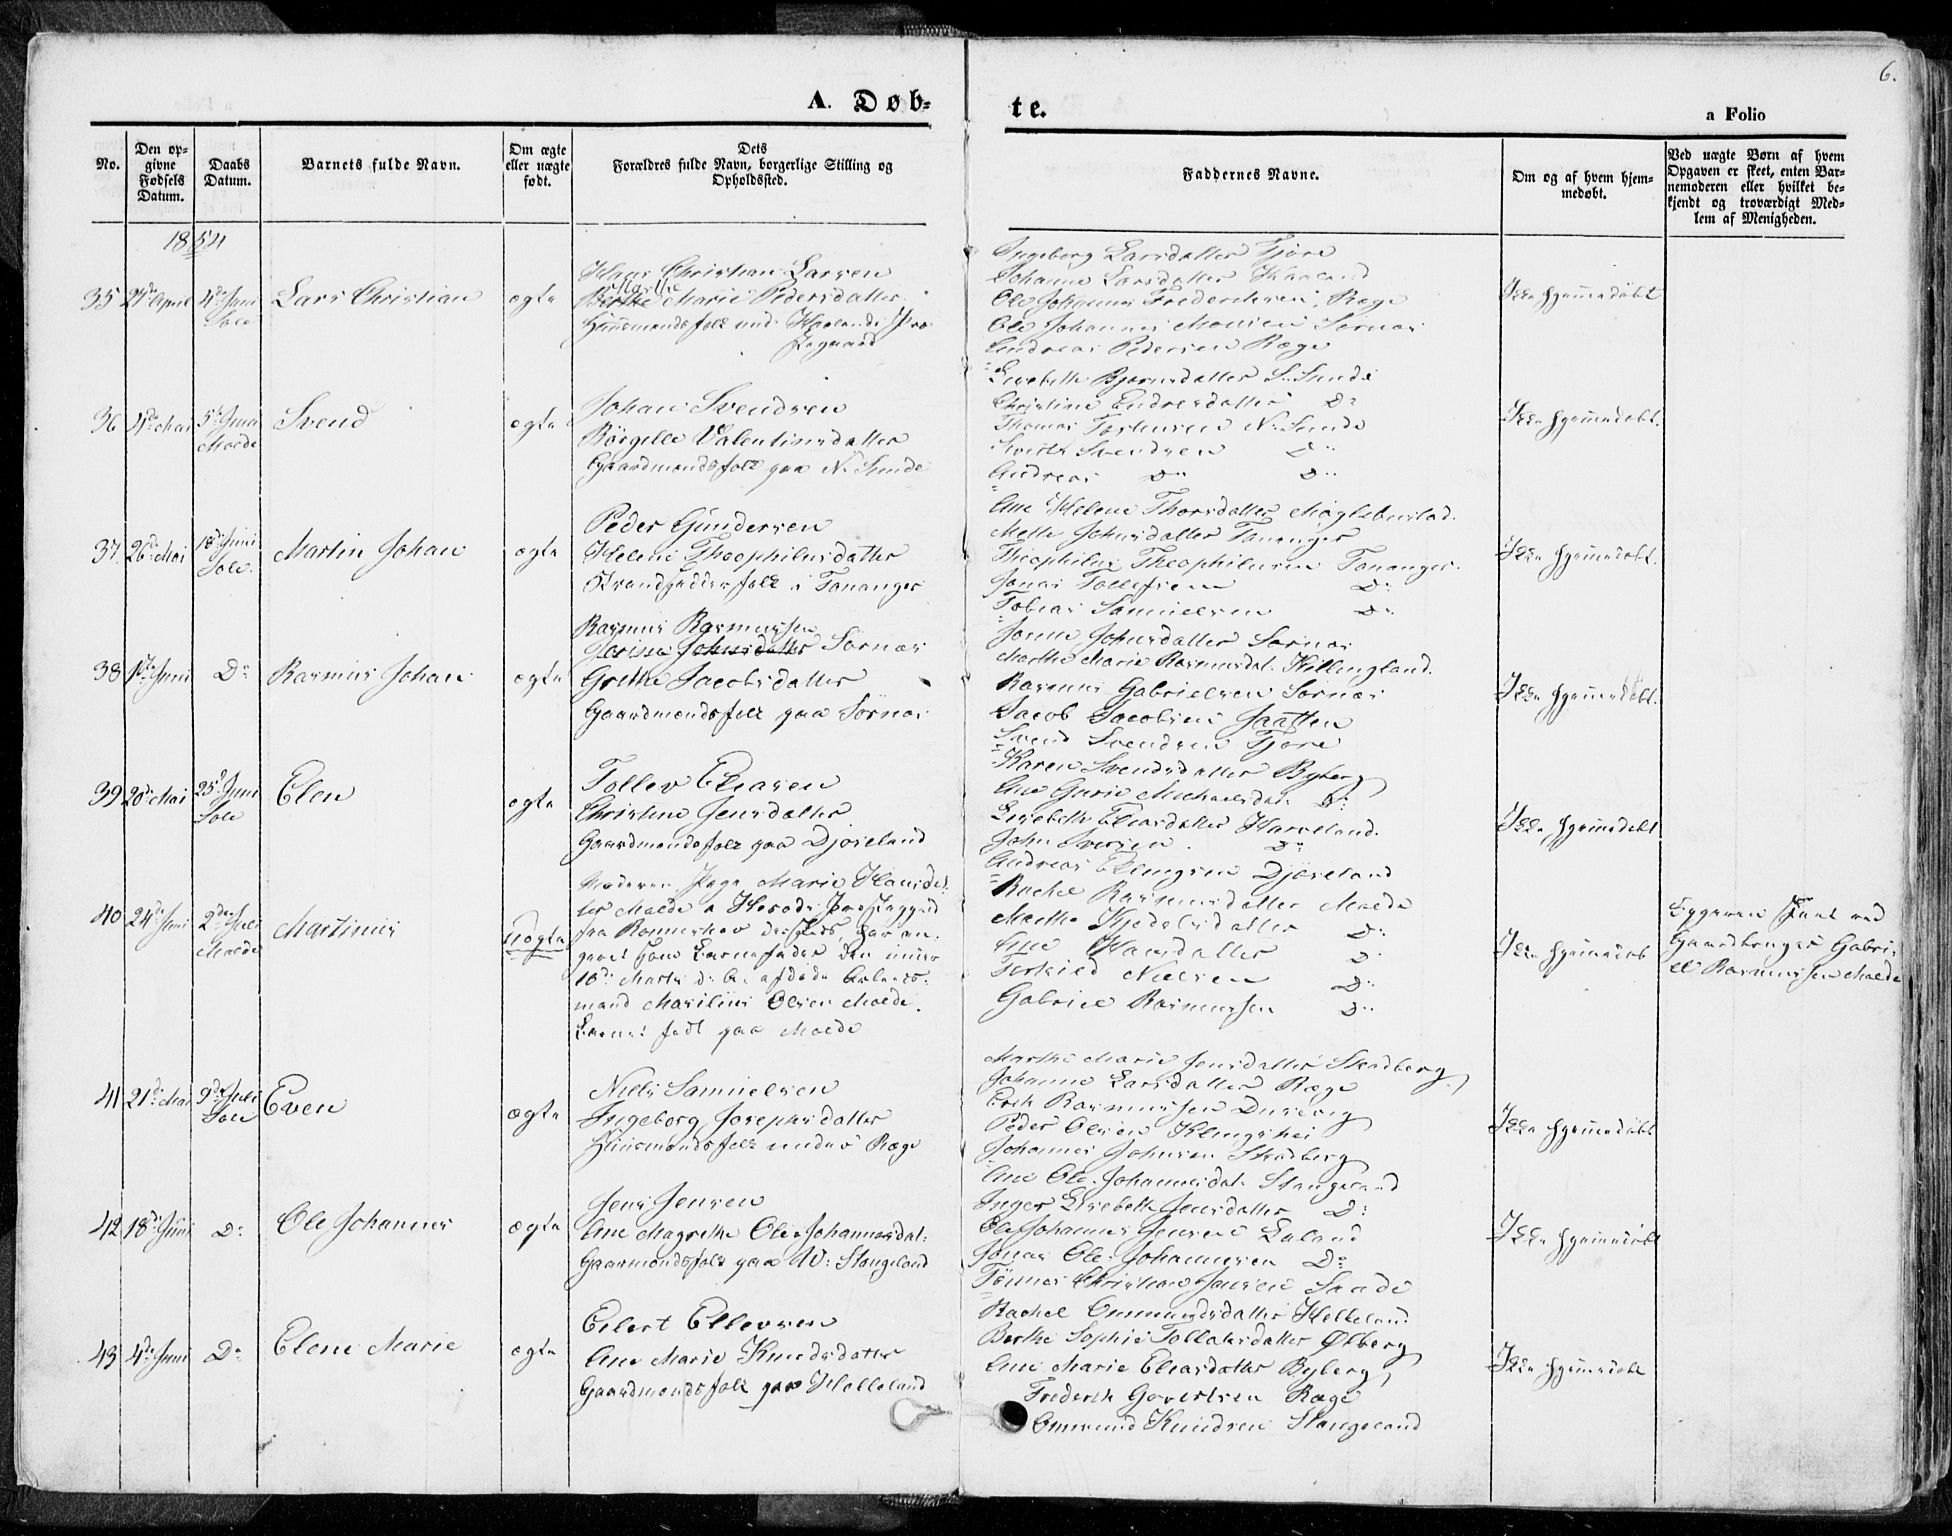 6.
A. Døb-
te.
a Folio
No.
Den op-
givne
Fødsels
Datum.
Daabs
Datum.
Barnets fulde Navn.
Om ægte
eller uægte
født.
Dets
Forældres fulde Navn, borgerlige Stilling og
Opholdssted.
Faddernes Navne.
Om og af hvem hjem-
medøbt.
Ved uægte Børn af hvem
Opgaven er skeet, enten Bar-
nemoderen eller hvilket be-
kjendt og troværdigt Med-
lem af Menigheden.
1854
35 27de April 4de Juni
Sole
Lars Christian
ægte
Hans Christian Larsen
Marthe
Berthe Marie Pedersdatter
Huusmandsfolk und. Haalands Præ-
stegaard
Ingeborg Larsdatter Fjøre
Johanne Larsdatter Haaland
Ole Johannes Frederiksen Ræge
Ole Johannes Monsen Sørnæs
Andreas Pedersen Ræge
Ikke hjemmedøbt
36 4de Mai 5te Juni
Malde
Svend
ægte
Johan Svendsen
Børgille Valentinsdatter
Gaardmandsfolk paa N. Sunde
Lisebeth Bjørnsdatter S. Sunde
Christine Endresdatter Do
Thomas Torkelsen N. Sunde
Sivert Svendsen Do
Andreas Do Do
Ikke hjemmedøbt.
37 26de Mai 18de Juni
Sole.
Martin Johan
ægte
Peder Gundersen
Helene Theophilusdatter
Strandsidderfolk i Tananger
Ane Helene Thorsdatter Meglebustad.
Mette Johnsdatter Tananger
Theophilus Theophilusen Tananger.
Jonas Tollefsen Do
Tobias Samuelsen Do
Ikke hjemmedøbt.
38 1ste Juni Do
Rasmus Johan
ægte
Rasmus Rasmussen
Johnsdatter Sørnæs
Grethe Jacobsdatter
Gaardmandsfolk paa Sørnæs
Johnsdatter Sørnæs
Marthe Marie Rasmusdat. Hillingland.
Rasmus Gabrielsen Sørnæs
Jacob Jacobsen Jaatten
Svend Svendsen Fjøre
Ikke hjemmedøbt.
39 20de Mai 25de Juni
Sole
Elen
ægte
Tollev Eliasen
Christine Jensdatter
Gaardmandsfolk paa Djøseland
Karen Svendsdatter Byberg
Ane Gurie Michaelsdat. Do
Lisebeth Eliasdatter Harveland.
John Iversen. Do
Andreas Elingsen Djøseland
Ikke hjemmedøbt
40 24de Juni 2den Juli
Malde
Martinus
Uægte
Moderen Pige Marie Hansdat-
ter Malde
givet som Barnefader den under
10de Marts d. A. afdøde Arbeids-
mand Olsen Malde.
Barnet født paa Malde
Rachel Rasmusdatter Malde
Marthe Kjedelsdatter Do
Ane Hansdatter Do
Torkild Nielsen Do
Gabriel Rasmussen Do
Ikke hjemmedøb
Opgaven skeet ved
Gaardbruger Gabri-
el Rasmussen Malde
41 21de Mai 9de Juli
Sole
Even
ægte
Niels Samuelsen
Ingeborg Josephsdatter
Huusmandsfolk under Ræge
Marthe Marie Jensdatter Stadberg
Johanne Larsdatter Ræge
Erik Rasmussen Dusevig
Peder Olsen Klingshei
Johannes Johnsen Stadberg
Ikke hjemmedøbt
42 18de Juni Do
Ole Johannes
ægte
Jens Jensen
Ane Magrethe Ole-Johannesdat.
Gaarmandsfolk paa W. Stangeland
Ane Ole-Johannesdat. Stangeland
Inger Lisebeth Jensdatter Do
Ole Johannes Jensen Laland
Jonas Ole-Johannesen Do
Tønnes Christian Jansen Sande
Ikke hjemmedøbt
43 4de Juni Do
Elene Marie
ægte
Eilert Ellevsen
Ane Marie Knudsdatter
Gaardmandsfolk paa Helleland
Rachel Ommundsdatter Helleland
Berthe Sophie Tollaksdatter Ølberg
Ane Marie Eliasdatter Byberg
Frederik Govertsen Ræge
Ommund Knudsen Stangeland
Ikke hjemmedøbt